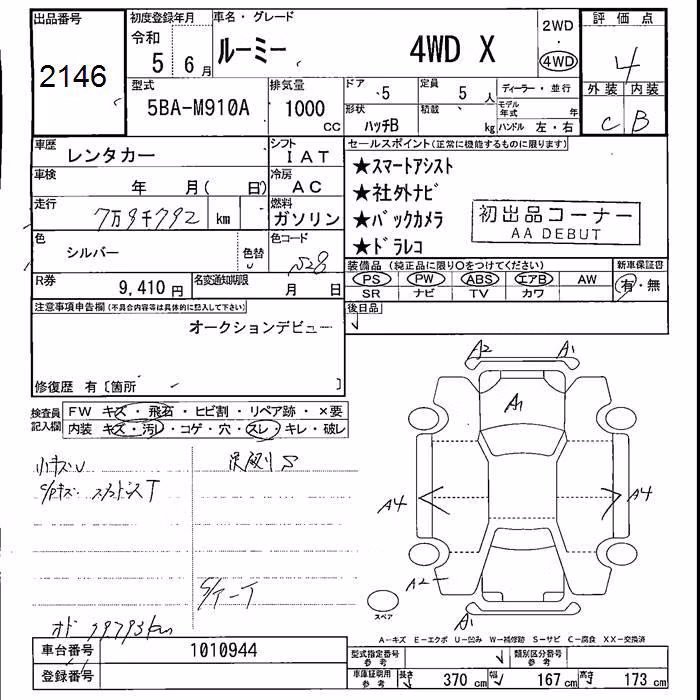 出品番号
2146
初度登録年月
令和
5 6月
車名・グレード
ルーミー 4WD X
2WD
・
4WD
評価点
4
外装 内装
C B
型式
5BA-M910A
排気量
1000
cc
ドア
5
定員
5 人
形状
ハッチB
積載
kg
ディーラー・並行
モデル年式 年
ハンドル 左・右
車歴
レンタカー
シフト
IAT
車検
年 月( 日)
冷房
AC
走行
7万9千792 km
燃料
ガソリン
色
シルバー
色替
色コード
S28
R券
9,410円
名変通知期限
月 日
セールスポイント(正常に機能するものに限ります)
★スマートアシスト
★社外ナビ
★バックカメラ
★ドラレコ
初出品コーナー
AA DEBUT
装備品(純正品に限り○をつけてください)
PS PW ABS エアB AW
SR ナビ TV カワ
新車保証書
有・無
後日品
注意事項申告欄(不具合内容等は具体的に記入して下さい)
オークションデビュー
修復歴 有〔箇所 〕
検査員記入欄
FW キズ・飛石・ヒビ割・リペア跡・×要
内装 キズ・汚レ・コゲ・穴・スレ・キレ・破レ
小キズU
オド 79793km
A2 A1
A1
A4 A4
A2
A1
スペア
A―キズ E―エクボ U―凹み W―補修跡 S―サビ C―腐食 XX―交換済
車台番号
1010944
登録番号
型式指定番号
参考
類別区分番号
参考
車庫証明用
参考
長さ 370 cm
幅 167 cm
高さ 173 cm